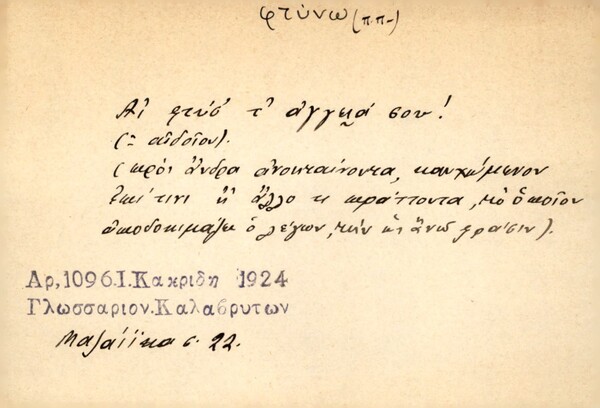 φτύνω (π.π-)
Αἲ φτύσ' τ' ἀγγειά σου!
(= αἰδοῖον).
(πρὸς ἄνδρα ἀνοηταίνοντα, καυχώμενον
ἐπί τινι ἢ ἄλλο τι πράττοντα, τὸ ὁποῖον
ἀποδοκιμάζει ὁ λέγων, τὴν ὡς ἄνω φράσιν).
Αρ,1096.Ι.Κακριδη 1924
Γλωσσαριον.Καλαβρυτων
Μαζαίϊκα σ. 22.